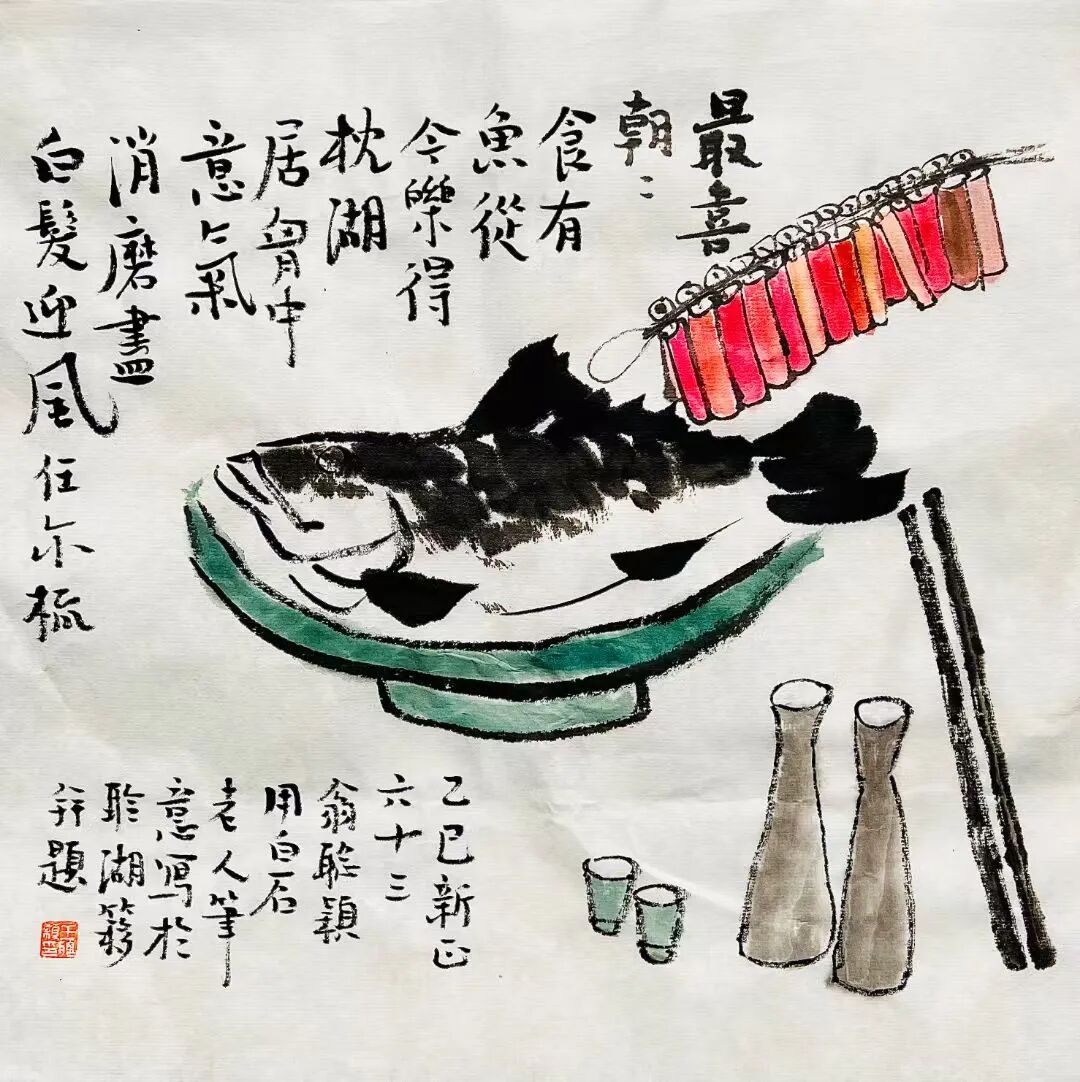 最喜
朝〻
食有
魚從
今樂得
枕湖
居胷中
意氣
消磨盡
白髮迎風任尒梳
乙巳新正
六十三
翁聆穎
用白石
老人筆
意寫於
聆湖簃
并題